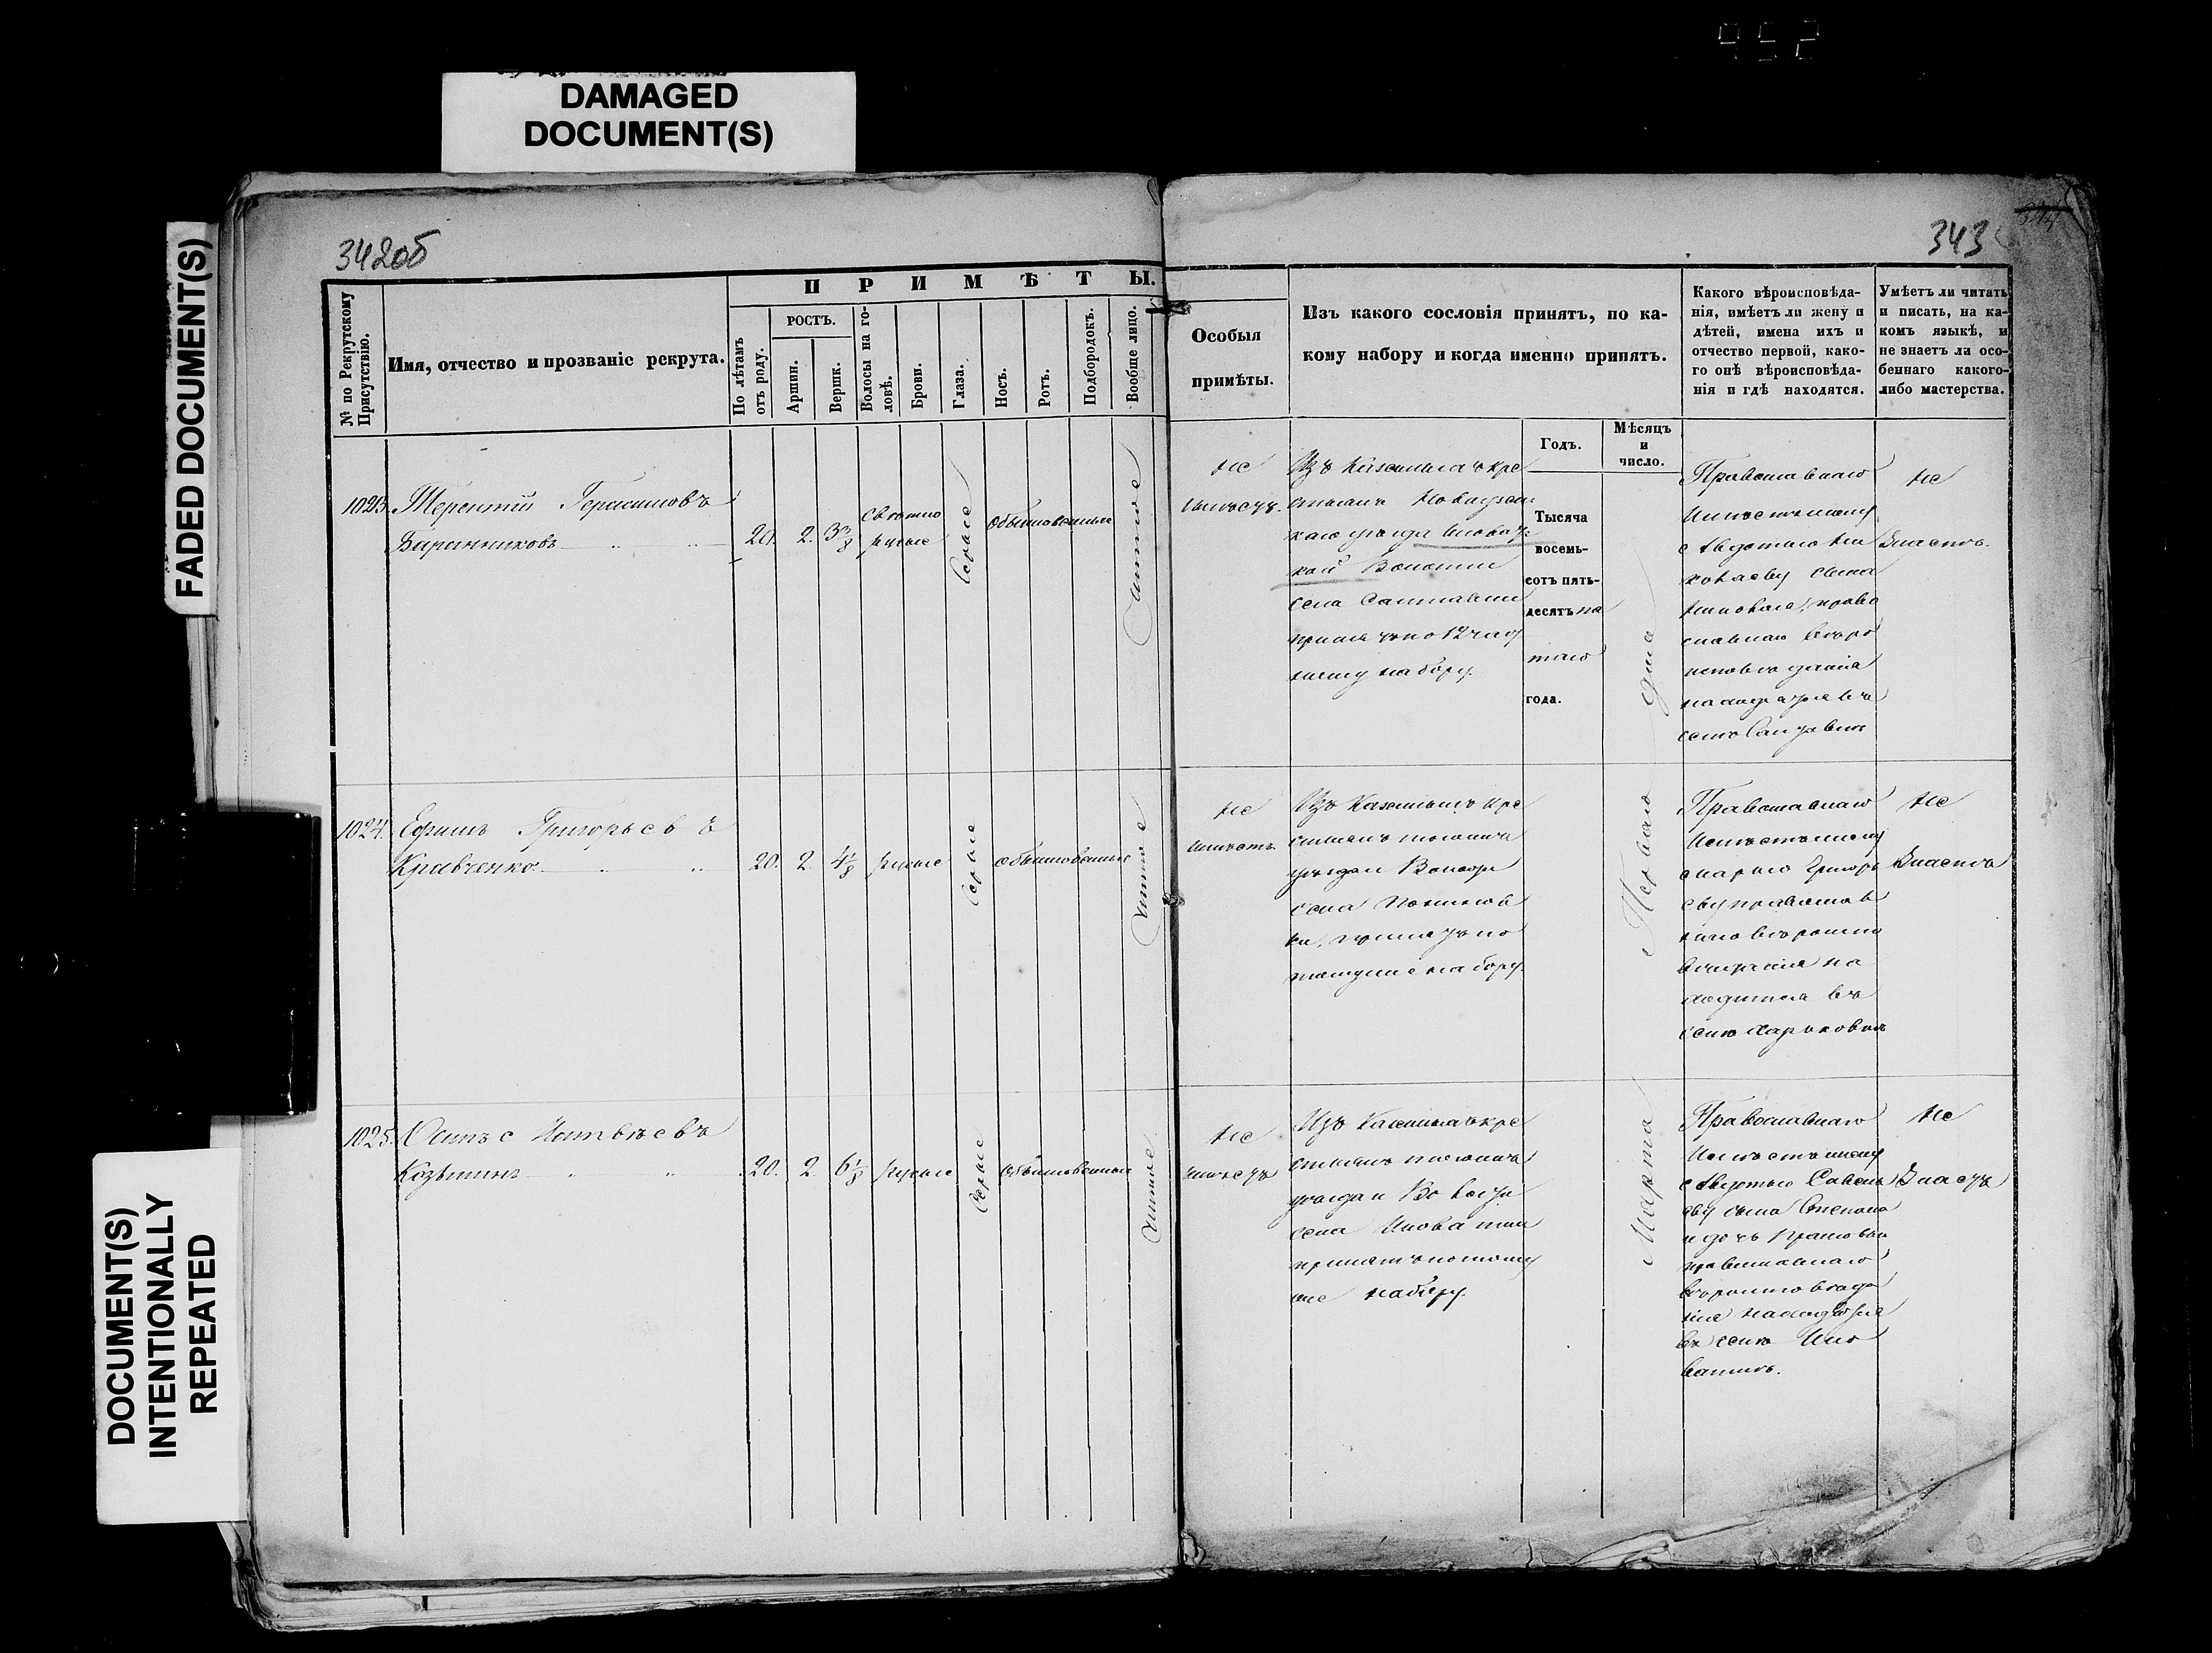 952
DAMAGED
DOCUMENT(S)
FADED DOCUMENT(S)
DOCUMENT(S)
INTENTIONALLY
REPEATED
342об
343
№ по Рекрутскому Присутствію.
Имя, отчество и прозваніе рекрута.
ПРИМѢТЫ.
По лѣтамъ отъ роду.
РОСТЪ.
Аршин.
Вершк.
Волосы на го-
ловѣ.
Брови.
Глаза.
Носъ.
Ротъ.
Подбородокъ.
Вообще лицо.
Особыя
примѣты.
Изъ какого сословія принятъ, по ка-
кому набору и когда именно принятъ.
Годъ.
Мѣсяцъ
и
число.
Какого вѣроисповѣда-
нія, имѣетъ ли жену и
дѣтей, имена ихъ и
отчество первой, како-
го онѣ вѣроисповѣда-
нія и гдѣ находятся.
Умѣетъ ли читать
и писать, на ка-
комъ языкѣ, и
не знаетъ ли осо-
беннаго какого-
либо мастерства.
1023. Терентій Герасимовъ
Баранниковъ
20. 2. 3 3/8
свѣтло
русые
Сѣрые
обыкновенные
Чистое
не
имѣетъ.
Изъ казенныхъ кре
стьянъ
каго уѣзда
кой Волости
села
принятъ по 12 част
ному набору.
Тысяча
восемь-
сотъ пять-
десять пя
таго
года.
Перваго дня
Марта
Православнаго
Имѣетъ жену
право
славнаго вѣро
исповѣданія
находятся въ
селѣ
не
Знаетъ.
1024. Ефимъ Григорьевъ
Кравченко
20. 2. 4 1/8
русые
Сѣрые
обыкновенные
Чистое
не
имѣетъ
Изъ Казенныхъ кре
стьянъ тогожъ
уѣзда и Волости
села
принятъ по
томуже набору.
Православнаго
Имѣетъ жену
Марью Григорь
еву православ
наго вѣроиспо
вѣданія на
ходится въ
селѣ Харьковкѣ
не
Знаетъ
1025.
Козьминъ
20. 2. 6 1/8
русые
Сѣрые
обыкновенные
Чистое
не
имѣетъ
Изъ Казенныхъ кре
стьянъ тогожъ
уѣзда и Волости
села
принятъ по тому
же набору.
Православнаго
Имѣетъ жену
Авдотью Савель
еву сына Степана
и дочь
православнаго
вѣроисповѣда
нія находятся
въ селѣ
не
Знаетъ